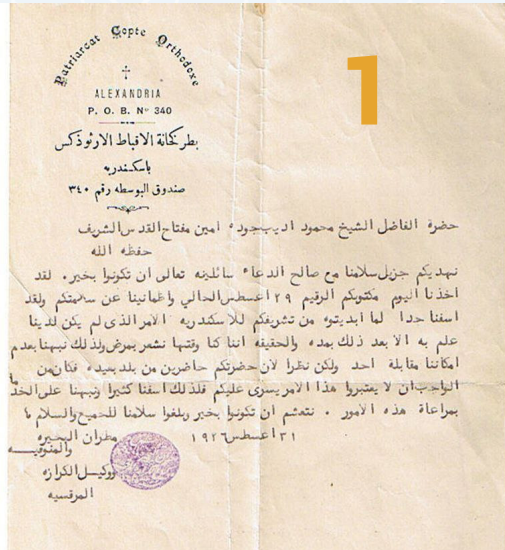 Patriarcat Copte Orthodoxe
ALEXANDRIA
P. O. B. Nº 340
1
بطركخانة الاقباط الارثوذكس
باسكندريه
صندوق البوسطه رقم ٣٤٠
حضرة الفاضل الشيخ محمود اديب جوده امين مفتاح القدس الشريف
حفظه الله
نهديكم جزيل سلامنا مع صالح الدعاء سائلينه تعالى ان تكونوا بخير. لقد
اخذنا اليوم مكتوبكم الرقيم ٢٩ اغسطس الحالي واطمأنينا عن سلامتكم ولقد
اسفنا جدا لما ابديتوه من تشريفكم للاسكندريه الامر الذى لم يكن لدينا
علم به الا بعد ذلك بمده والحقيقه اننا كنا وقتها نشعر بمرض ولذلك نبهنا بعدم
امكاننا مقابلة احد ولكن نظرا لان حضرتكم حاضرين من بلد بعيده فكان من
الواجب ان لا يعتبروا هذا الامر يسرى عليكم فلذلك اسفنا كثيرا ونبهنا على الخدام
بمراعاة هذه الامور . نتعشم ان تكونوا بخير وبلغوا سلامنا للجميع والسلام
٣١ اغسطس ١٩٢٦ مطران البحيره
والمنوفيه
ووكيل الكرازه
المرقسيه